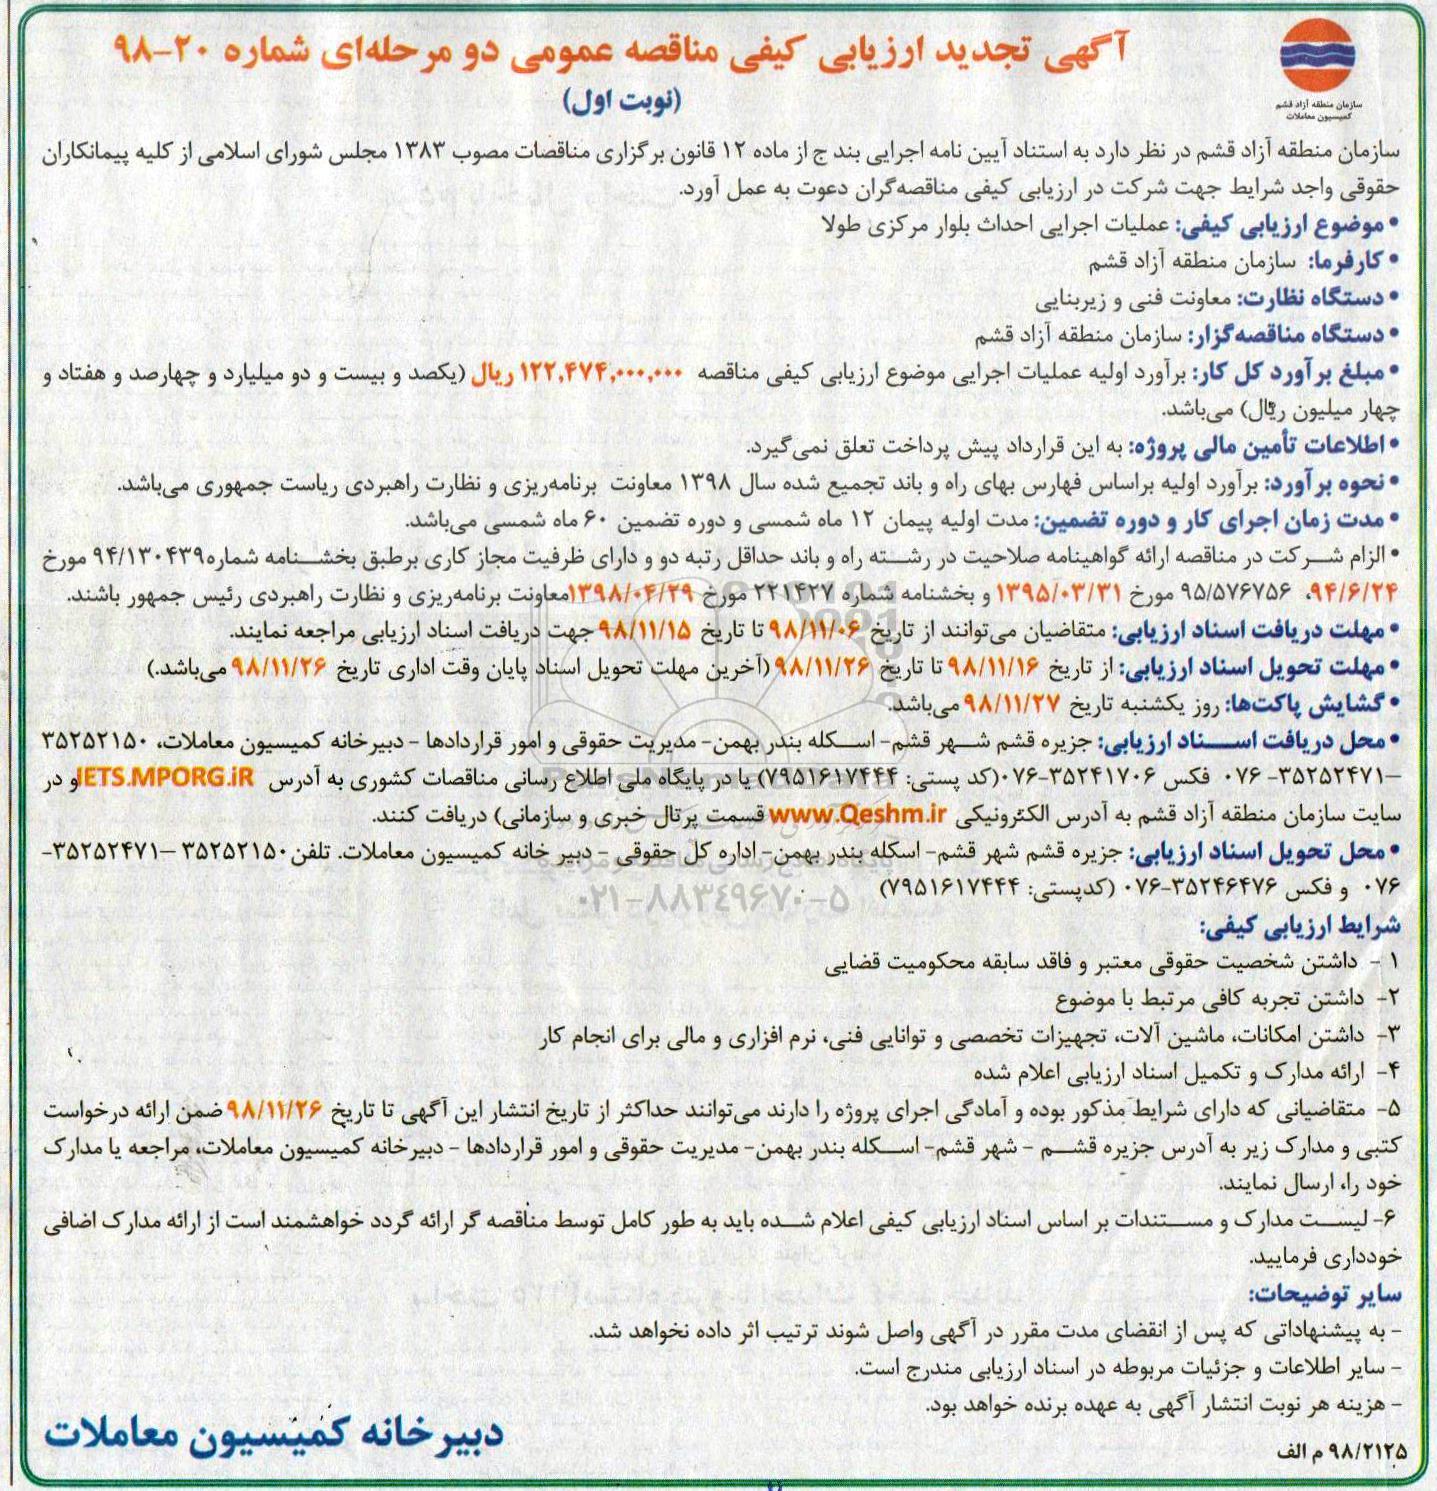 سازمان منطقه آزاد قشم
کمیسیون معاملات
آگهی تجدید ارزیابی کیفی مناقصه عمومی دو مرحله‌ای شماره ۲۰-۹۸
(نوبت اول)
سازمان منطقه آزاد قشم در نظر دارد به استناد آیین نامه اجرایی بند ج از ماده ۱۲ قانون برگزاری مناقصات مصوب ۱۳۸۳ مجلس شورای اسلامی از کلیه پیمانکاران
حقوقی واجد شرایط جهت شرکت در ارزیابی کیفی مناقصه‌گران دعوت به عمل آورد.
• موضوع ارزیابی کیفی: عملیات اجرایی احداث بلوار مرکزی طولا
• کارفرما: سازمان منطقه آزاد قشم
• دستگاه نظارت: معاونت فنی و زیربنایی
• دستگاه مناقصه‌گزار: سازمان منطقه آزاد قشم
• مبلغ برآورد کل کار: برآورد اولیه عملیات اجرایی موضوع ارزیابی کیفی مناقصه ۱۲۲,۴۷۴,۰۰۰,۰۰۰ ریال (یکصد و بیست و دو میلیارد و چهارصد و هفتاد و
چهار میلیون ریال) می‌باشد.
• اطلاعات تأمین مالی پروژه: به این قرارداد پیش پرداخت تعلق نمی‌گیرد.
• نحوه برآورد: برآورد اولیه براساس فهارس بهای راه و باند تجمیع شده سال ۱۳۹۸ معاونت برنامه‌ریزی و نظارت راهبردی ریاست جمهوری می‌باشد.
• مدت زمان اجرای کار و دوره تضمین: مدت اولیه پیمان ۱۲ ماه شمسی و دوره تضمین ۶۰ ماه شمسی می‌باشد.
• الزام شرکت در مناقصه ارائه گواهینامه صلاحیت در رشته راه و باند حداقل رتبه دو و دارای ظرفیت مجاز کاری برطبق بخشنامه شماره۹۴/۱۳۰۴۳۹ مورخ
۹۴/۶/۲۴، ۹۵/۵۷۶۷۵۶ مورخ ۱۳۹۵/۰۳/۳۱ و بخشنامه شماره ۲۲۱۴۲۷ مورخ ۱۳۹۸/۰۴/۲۹معاونت برنامه‌ریزی و نظارت راهبردی رئیس جمهور باشند.
• مهلت دریافت اسناد ارزیابی: متقاضیان می‌توانند از تاریخ ۹۸/۱۱/۰۶ تا تاریخ ۹۸/۱۱/۱۵ جهت دریافت اسناد ارزیابی مراجعه نمایند.
• مهلت تحویل اسناد ارزیابی: از تاریخ ۹۸/۱۱/۱۶ تا تاریخ ۹۸/۱۱/۲۶ (آخرین مهلت تحویل اسناد پایان وقت اداری تاریخ ۹۸/۱۱/۲۶ می‌باشد.)
• گشایش پاکت‌ها: روز یکشنبه تاریخ ۹۸/۱۱/۲۷ می‌باشد.
• محل دریافت اسناد ارزیابی: جزیره قشم شهر قشم- اسکله بندر بهمن- مدیریت حقوقی و امور قراردادها - دبیرخانه کمیسیون معاملات، ۳۵۲۵۲۱۵۰
–۳۵۲۵۲۴۷۱- ۰۷۶ فکس ۳۵۲۴۱۷۰۶-۰۷۶(کد پستی: ۷۹۵۱۶۱۷۴۴۴) یا در پایگاه ملی اطلاع رسانی مناقصات کشوری به آدرس IETS.MPORG.iR و در
سایت سازمان منطقه آزاد قشم به آدرس الکترونیکی www.Qeshm.ir قسمت پرتال خبری و سازمانی) دریافت کنند.
• محل تحویل اسناد ارزیابی: جزیره قشم شهر قشم- اسکله بندر بهمن- اداره کل حقوقی - دبیر خانه کمیسیون معاملات. تلفن۳۵۲۵۲۱۵۰ –۳۵۲۵۲۴۷۱-
۰۷۶ و فکس ۳۵۲۴۶۴۷۶-۰۷۶ (کدپستی: ۷۹۵۱۶۱۷۴۴۴)
۰۲۱-۸۸۳۴۹۶۷۰-۵
شرایط ارزیابی کیفی:
۱ - داشتن شخصیت حقوقی معتبر و فاقد سابقه محکومیت قضایی
۲- داشتن تجربه کافی مرتبط با موضوع
۳- داشتن امکانات، ماشین آلات، تجهیزات تخصصی و توانایی فنی، نرم افزاری و مالی برای انجام کار
۴- ارائه مدارک و تکمیل اسناد ارزیابی اعلام شده
۵- متقاضیانی که دارای شرایط مذکور بوده و آمادگی اجرای پروژه را دارند می‌توانند حداکثر از تاریخ انتشار این آگهی تا تاریخ ۹۸/۱۱/۲۶ ضمن ارائه درخواست
کتبی و مدارک زیر به آدرس جزیره قشم - شهر قشم- اسکله بندر بهمن- مدیریت حقوقی و امور قراردادها - دبیرخانه کمیسیون معاملات، مراجعه یا مدارک
خود را، ارسال نمایند.
۶- لیست مدارک و مستندات بر اساس اسناد ارزیابی کیفی اعلام شده باید به طور کامل توسط مناقصه گر ارائه گردد خواهشمند است از ارائه مدارک اضافی
خودداری فرمایید.
سایر توضیحات:
- به پیشنهاداتی که پس از انقضای مدت مقرر در آگهی واصل شوند ترتیب اثر داده نخواهد شد.
- سایر اطلاعات و جزئیات مربوطه در اسناد ارزیابی مندرج است.
- هزینه هر نوبت انتشار آگهی به عهده برنده خواهد بود.
۹۸/۲۱۲۵ م الف
دبیرخانه کمیسیون معاملات